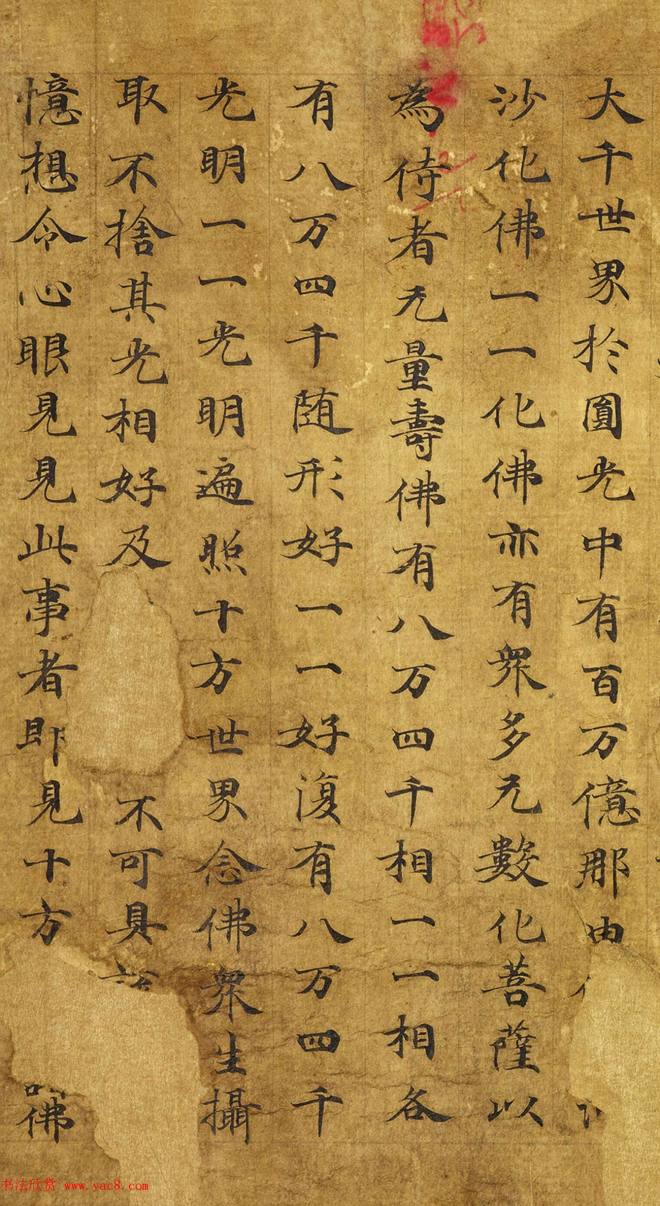 大千世界於圓光中有百万億那由
沙化佛一一化佛亦有衆多无數化菩薩以
為侍者无量壽佛有八万四千相一一相各
有八万四千随形好一一好復有八万四千
光明一一光明遍照十方世界念佛衆生攝
取不捨其光相好及不可具
憶想令心眼見見此事者即見十方佛
书法欣赏 www.yac8.com